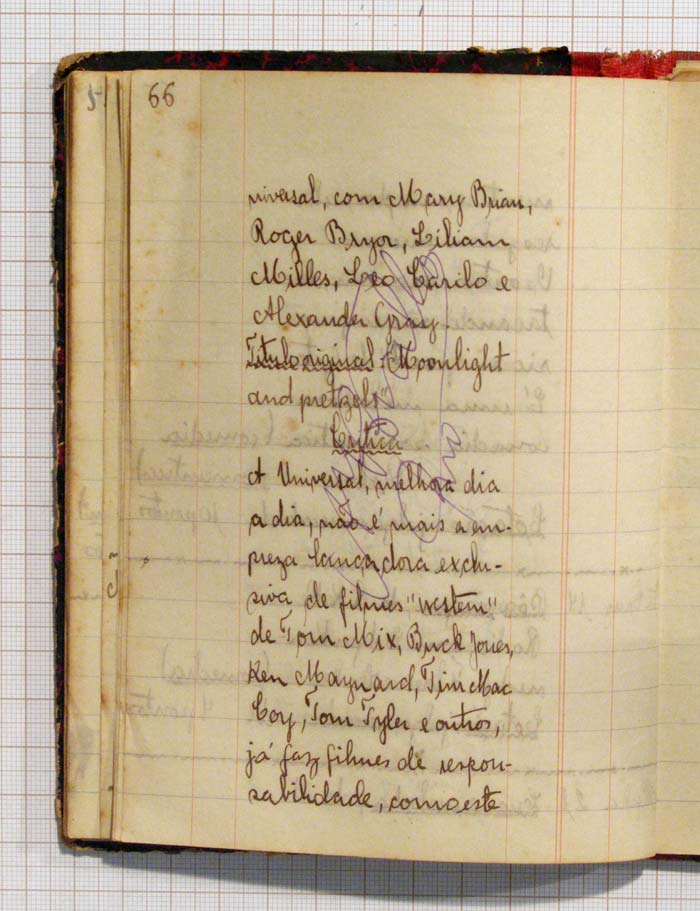 66
niversal, com Mary Brian,
Roger Bryor, Liliam
Milles, Leo Carilo e
Alexander Gray.
Titulo original "Moonlight
and pretzels"
Critica
A Universal, melhora dia
a dia, não é mais a em-
preza lançadora exclu-
siva de filmes "western"
de Tom Mix, Buck Jones,
Ken Maynard, Tim Mac
Coy, Tom Tyler e outros,
já faz filmes de respon-
sabilidade, como este